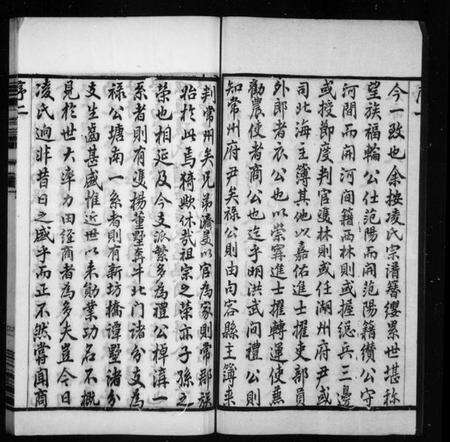 今一致也余按凌氏宗譜簪纓累世堪稱
望族福輪公仕范陽而開范陽籍鑽公守
河間而開河間籍西林則或握總兵三邊
或授節度判官雙林則或任湖州府尹或
司北海主簿其他以嘉佑進士擢吏部員
外郎者衣公也以紫霄進士擢轉運使兼
勸農使者商公也迄乎明洪武間禮公則
知常州府尹矣祿公則由句容縣主簿來
判常州矣兄弟濟美以官為家則常郡族
始於此焉猗歟休哉祖宗之榮亦子孫之
榮也相延及今支派繁多為禮公棹溝一
系者則有雙楊董墅舜北門諸分支為
祿公塘南一系者則有新坊橋譚墅諸分
支生齒甚盛惟近世以来勛業功名不概
見於世大率力田經商者為多夫豈今日
凌氏迥非昔日之盛乎而正不然嘗聞商
序二